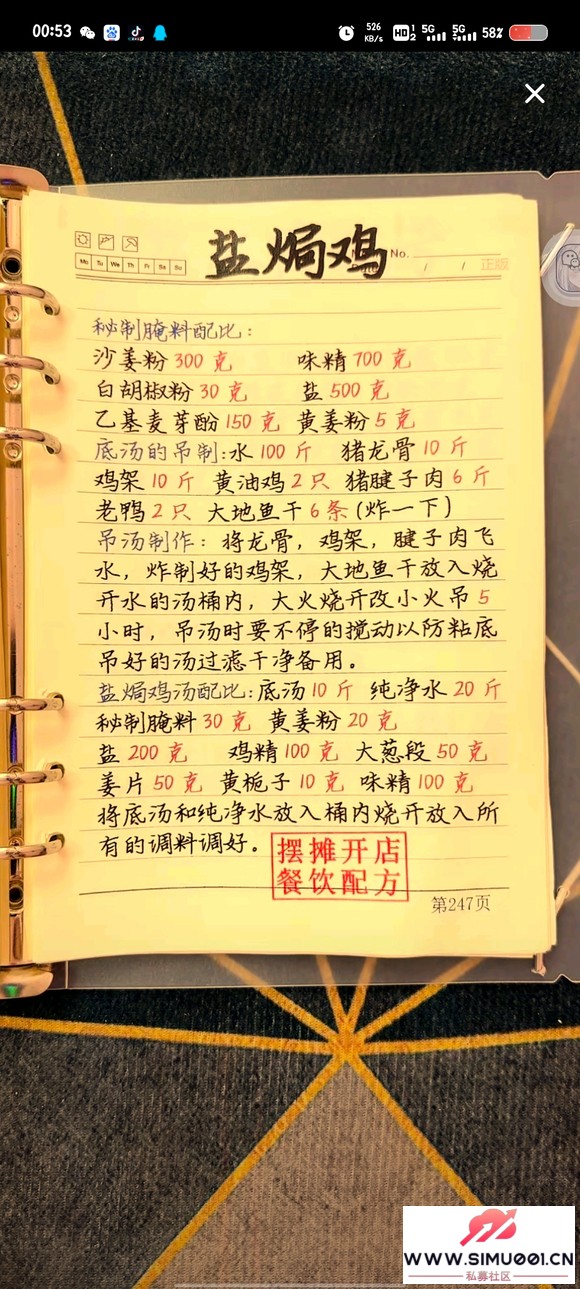 00:53
526
KB/s
HD 1
2
5G
5G
58%
盐焗鸡
No.
Mo Tu We Th Fr Sa Su
/ /
正版
秘制腌料配比：
沙姜粉 300 克 味精 700 克
白胡椒粉 30 克 盐 500 克
乙基麦芽酚 150 克 黄姜粉 5 克
底汤的吊制:水 100 斤 猪龙骨 10 斤
鸡架 10 斤 黄油鸡 2 只 猪腱子肉 6 斤
老鸭 2 只 大地鱼干 6 条 (炸一下)
吊汤制作：将龙骨，鸡架，腱子肉飞
水，炸制好的鸡架，大地鱼干放入烧
开水的汤桶内，大火烧开改小火吊 5
小时，吊汤时要不停的搅动以防粘底
吊好的汤过滤干净备用。
盐焗鸡汤配比:底汤 10 斤 纯净水 20 斤
秘制腌料 30 克 黄姜粉 20 克
盐 200 克 鸡精 100 克 大葱段 50 克
姜片 50 克 黄栀子 10 克 味精 100 克
将底汤和纯净水放入桶内烧开放入所
有的调料调好。
摆摊开店
餐饮配方
第247页
WWW.SIMU001.CN
私募社区